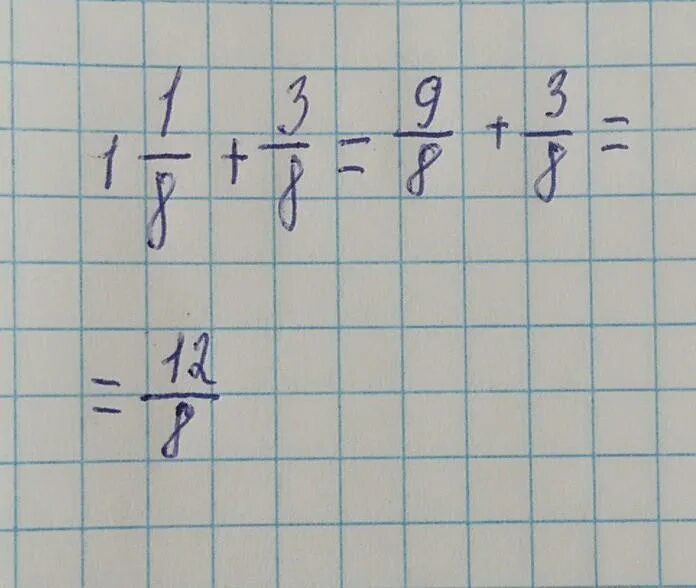 1 1/8 + 3/8 = 9/8 + 3/8 =
= 12/8